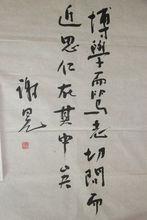 博學而篤志切問而
近思仁在其中矣
謝晃